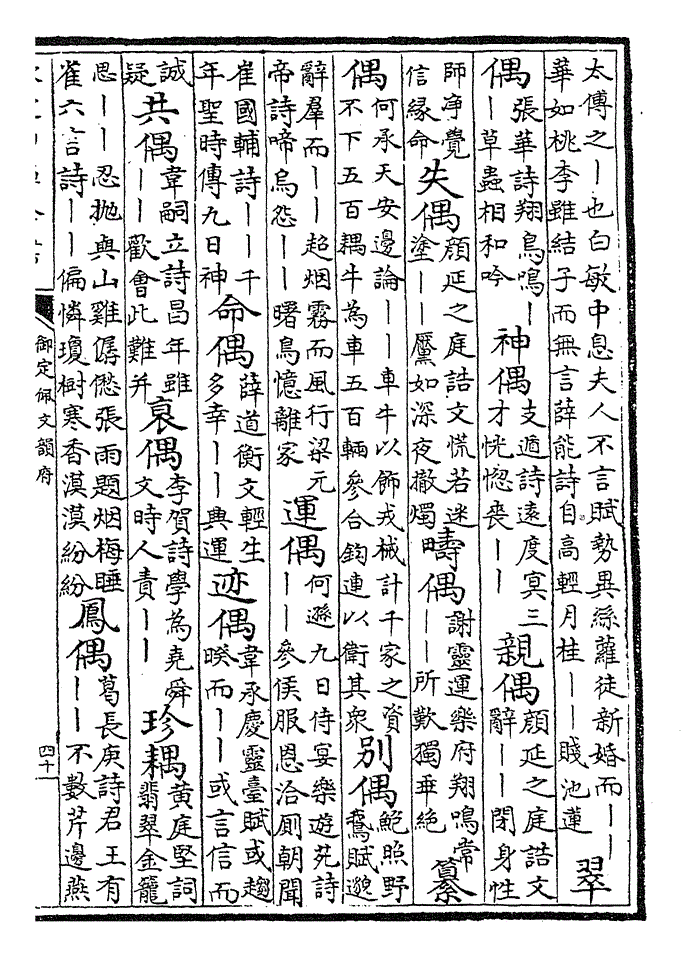 太傅之｜也白敏中息夫人不言賦勢異絲蘿徒新婚而｜｜
華如桃李雖結子而無言薛能詩自高輕月桂｜｜賤池蓮 翠
偶 張華詩翔鳥鳴｜｜草蟲相和吟 神偶 支遁詩遠度冥三才恍惚喪｜｜ 親偶 顏延之庭誥文辭｜｜閉身性
師淨覺信緣命 失偶 顏延之庭誥文慌若迷塗｜｜黶如深夜撤燭 疇偶 謝靈運樂府翔鳴常｜｜所歎獨乖絕 纂
偶 何承天安邊論｜｜車牛以飾戎械計千家之資不下五百耦牛為車五百輛參合鈎連以衛其衆 别偶 鮑照野鵞賦邈
辭羣而｜｜超烟霧而風行梁元帝詩啼烏怨｜｜曙鳥憶離家 運偶 何遜九日侍宴樂遊苑詩｜｜參侯服恩洽厠朝聞
崔國輔詩｜｜千年聖時傳九日神 命偶 薛道衡文輕生多幸｜｜典運 迹偶 韋承慶靈臺賦或趨睽而｜｜或言信而
誠疑 共偶 韋嗣立詩昌年雖｜｜歡會此難并 衰偶 李賀詩學為堯舜文時人責｜｜ 珍耦 黃庭堅詞翡翠金籠
思｜｜忍拋與山雞僝僽張雨題烟梅睡雀六言詩｜｜偏憐瓊樹寒香漠漠紛紛 鳳偶 葛長庚詩君王有｜｜不數芹邊燕
御定佩文韻府
四十